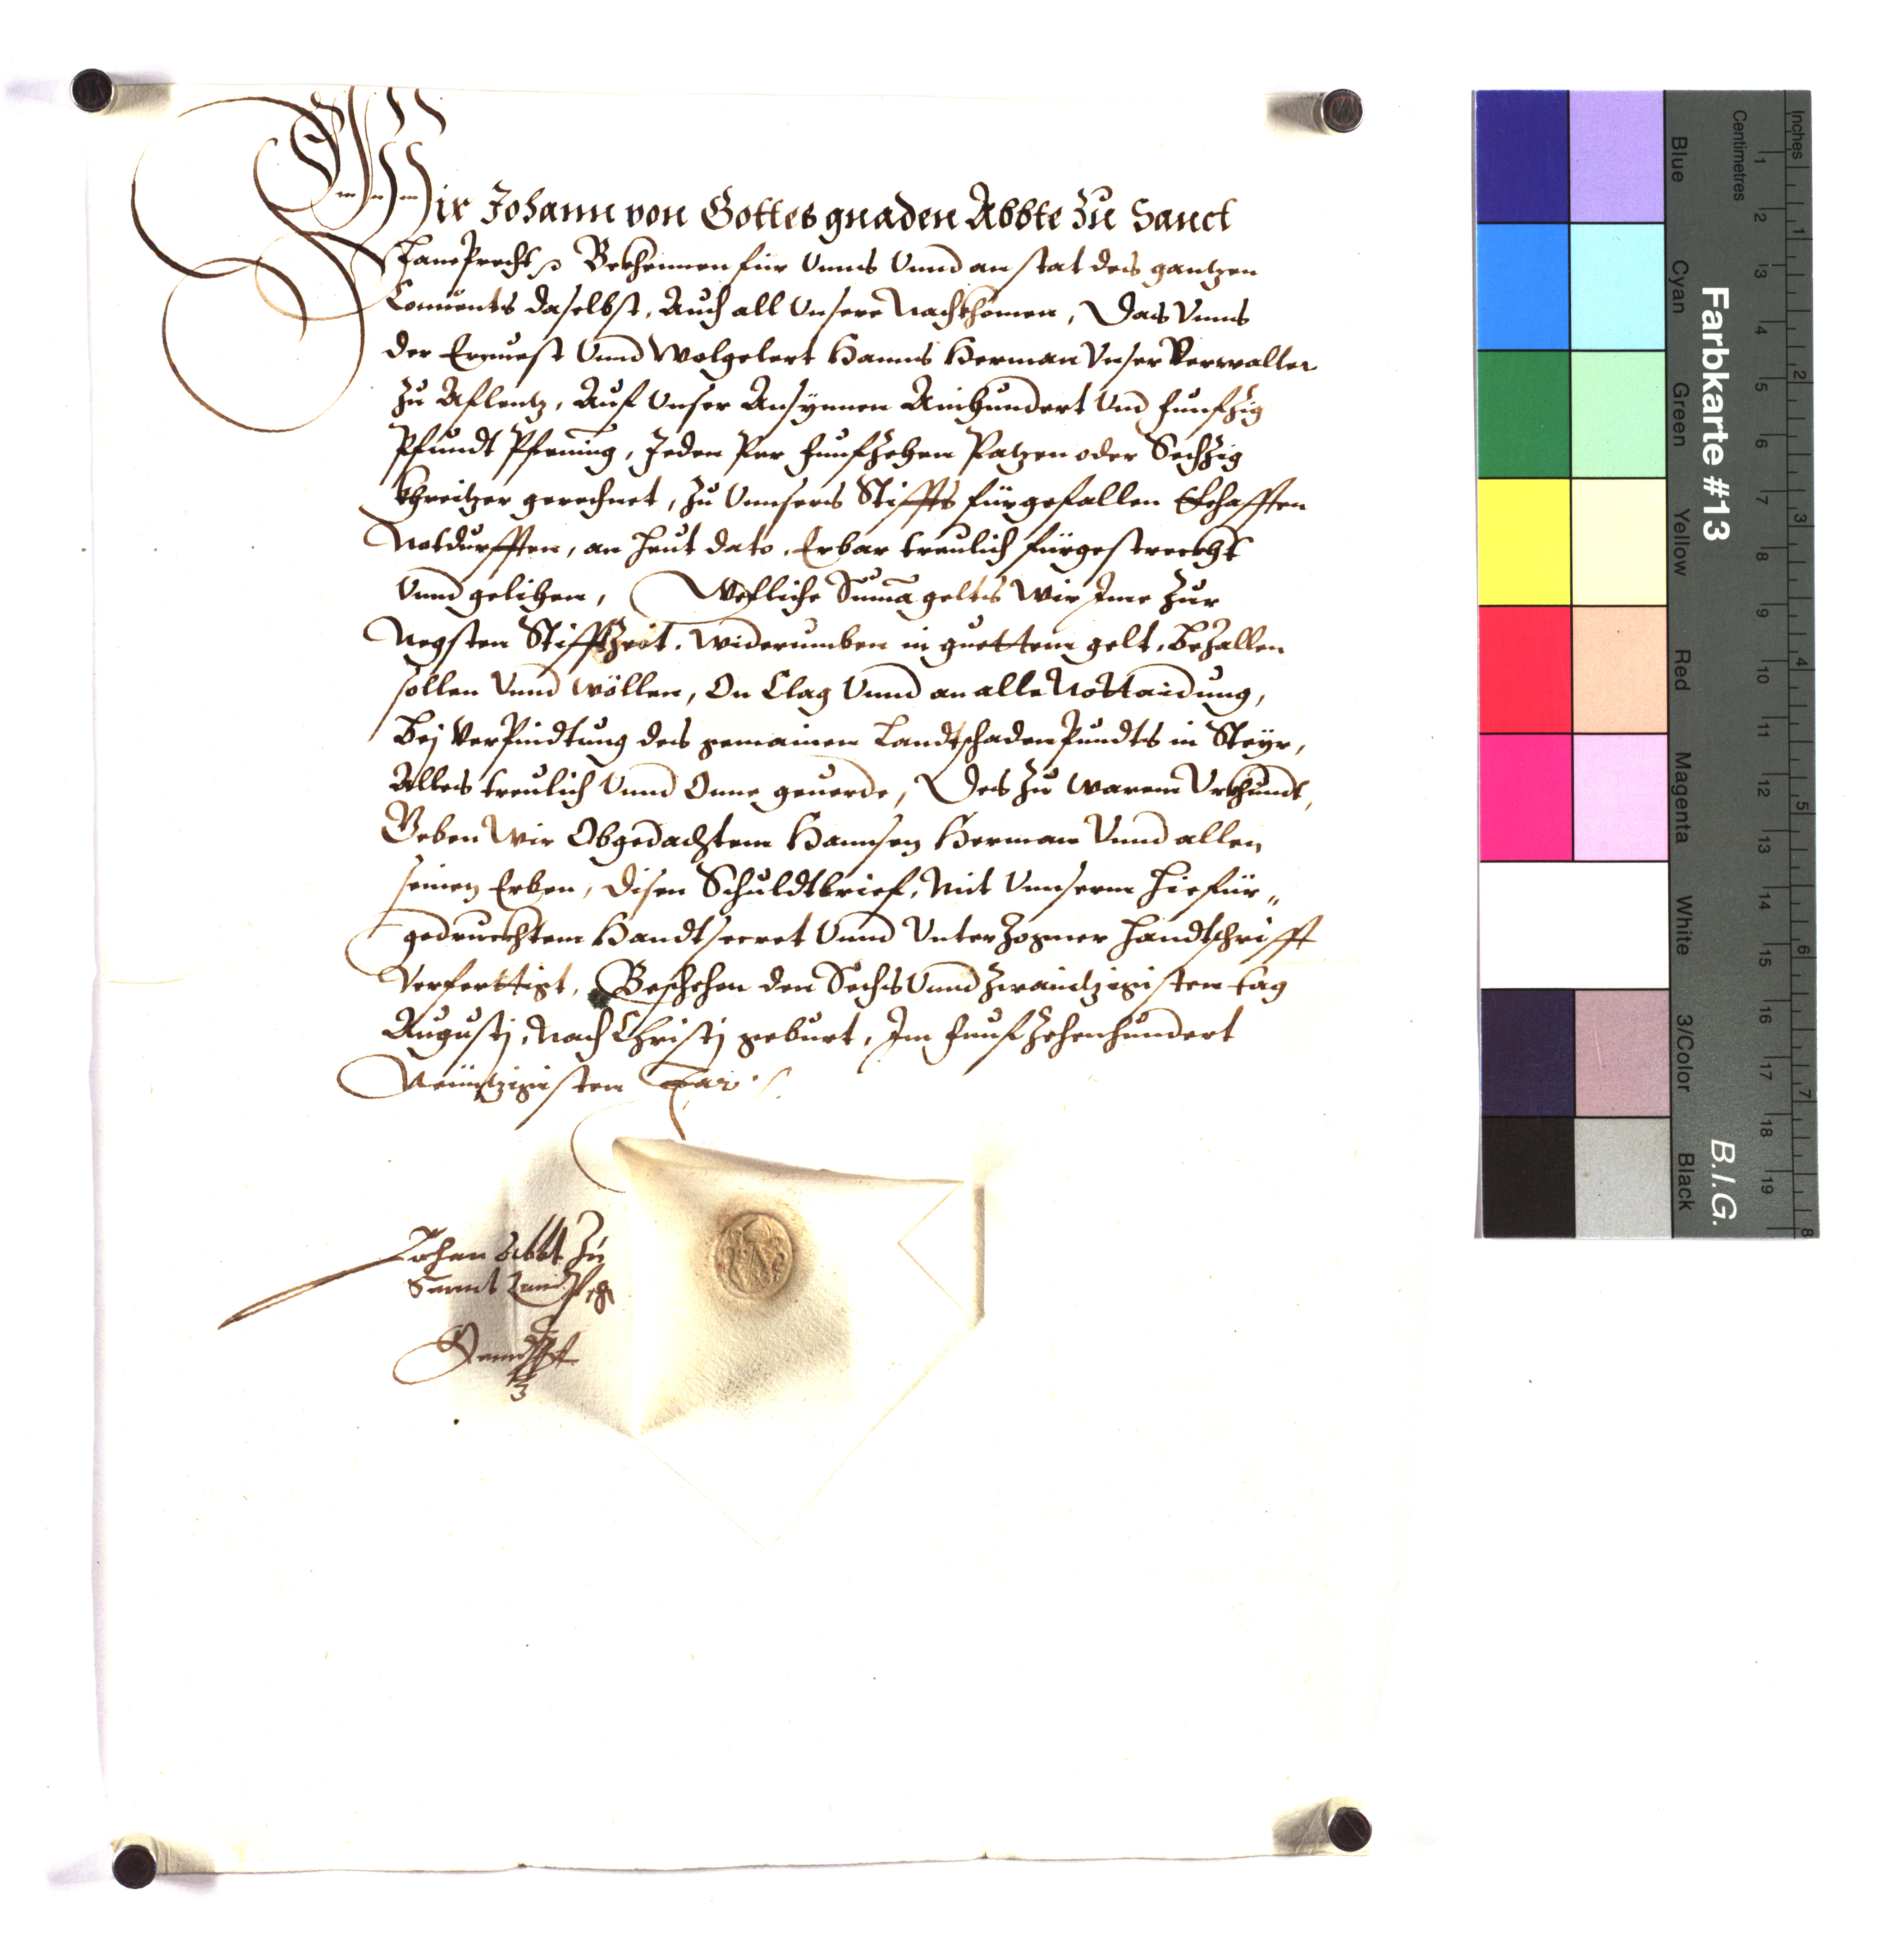 Wir Johann von Gottes gnaden Abbte zu Sanct
Lamprecht Bekhennen für Unns Unnd an stat des gantzen
Conuents daselbst, Auch all Unsere Nachkhomen, Das Unns
der Ernuest Unnd Wolgelert Hanns Herman Unser Verwalter
zu Aflentz, Auf Unser Ansynnen Ainhundert Und funfzig
Pfundt Pfening, Jeden per funfzehen Patzen oder Sechzig
khreitzer gerechnet, zu Unnsers Stiffts fürgefallen Ehafften
Notdurfften, an heut dato, Erbar treulich fürgestreckht
Unnd gelihen, Wefliche Suma gelts Wir Ime zur
Negsten Stifftzeit, widerumben in guettem gelt, bezallen
sollen Unnd wöllen, On Clag Unnd an alle Nottaidung,
Bej Verpindtung des gemainen Landtschadenpundts in Steyr,
Alles treulich Unnd Onne geuerde, Des zu warem Urkhundt,
Geben Wir Obgedachtem Hannsen Herman Unnd allen
seinen Erben, disen Schuldtbrief, Mit Unnserm hiefür„
gedruckhtem Handtsecret Unnd Unterzogner handtschrifft
Verferttigt, Beschehen den Sechs Unnd zwaintzigisten tag
Augustj, Nach Christj geburt, Im funfzehenhundert
Neüntzigisten Jar
Johan Abbt zu
Sannt Lamprecht
Handschrifft
Farbkarte #13
B.I.G.
Centimetres
Inches
Blue
Cyan
Green
Yellow
Red
Magenta
White
3/Color
Black
1 2 3 4 5 6 7 8 9 10 11 12 13 14 15 16 17 18 19
1 2 3 4 5 6 7 8